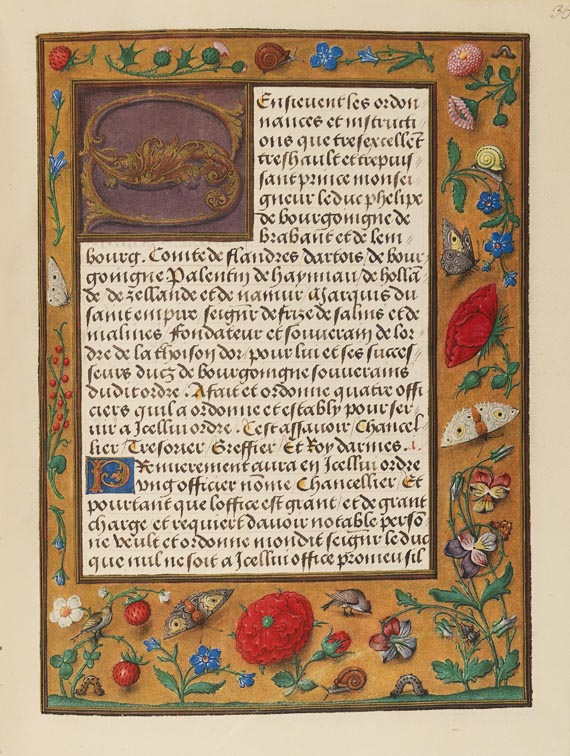 36
Ensievent les ordon
nances et instructi
ons que tresexcellet
treshault et trepuis
sant prince monsei
gneur le duc phelipe
de bourgoingne de
brabant et de lem
bourg. Comte de flandres dartois de bour
goingne Palentin de haynnau de hollan
de de zellande et de namur Marquis du
saint empire seignr de frize de salins et de
malines Fondateur et souverain de lor
dre de la thoison dor, pour lui et ses succes
seurs ducz de bourgoingne souverains
dudit ordre. A fait et ordonne quatre offi
ciers quil a ordonne et estably pour ser
uir a Icellui ordre. Cest assauoir Chancel
lier Tresorier Greffier Et Roy darmes.
Premierement aura en Icellui ordre
vng officier nome Chancellier Et
pourtant que loffice est grant, et de grant
charge et requiert dauoir notable perso
ne veult et ordonne mondit seignr le duc
que nul ne soit a Icellui office promeu sil